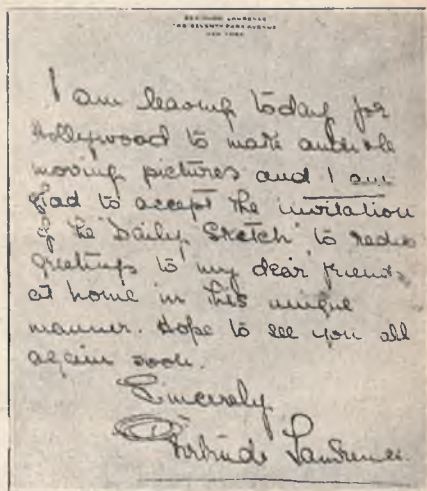 GERTRUDE LAWRENCE
SEVENTH PARK AVENUE
NEW YORK
I am leaving today for
Hollywood to make audible
moving pictures and I am
glad to accept the invitation
of the "Daily Sketch" to radio
greetings to my dear friends
at home in this unique
manner. Hope to see you all
again soon.
Sincerely
Gertrude Lawrence.